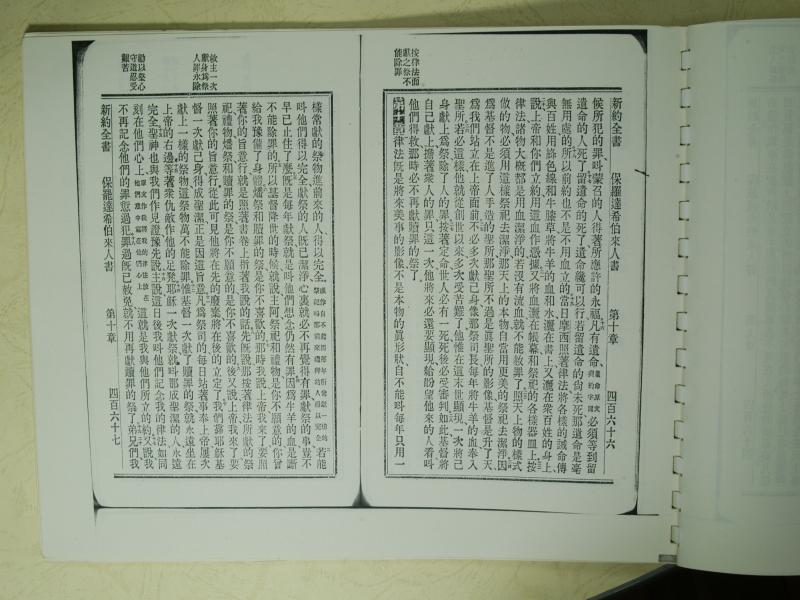 新約全書 保羅達希伯來人書 第十章 四百六十六
候所犯的罪呌蒙召的人得著所應許的永福凡有遺命必須等到留
遺命的人死了留遺命的死了遺命纔可以行若留遺命的尙未死那遺命是毫
無用處的所以前約也不是不用血立的當日摩西照著律法將各樣的誡命傳
與百姓用絳色線和牛膝草將牛羊的血和水灑在書上又灑在衆百姓的身上
說上帝和你們立約用這血作憑據又將血灑在帳幕和祭祀的各樣器皿上按
律法諸物大槪都是用血潔淨的若沒有流血就不能赦罪了照天上物的樣式
做的物必須用這樣祭祀去潔淨那天上的本物自當用更美的祭祀去潔淨因
爲基督不是進了人手造的聖所那聖所不過是眞聖所的影像基督是升了天
爲我們站立在上帝面前不必多次獻己身像那祭司長每年將牛羊的血奉入
聖所若必這樣他就從創世以來多次受苦難了他惟在這末世顯現一次將己
身獻上爲祭除了人的罪按著定命世人必有一死死後必受審判如此基督將
自己獻上擔著衆人的罪只這一次他將來必還要顯現給盼望他來的人看呌
他們得救那時必不再獻贖罪的祭了
第十章律法旣是將來美事的影像不是本物的眞形狀自不能呌每年只用一
按律法而
獻之祭不
能除罪
樣常獻的祭物進前來的人得以完全若能
呌他們得以完全獻祭的人旣已潔淨心裏就必不再覺得有罪獻祭的事豈不
早已止住了麼旣是每年獻祭就是呌他們想念仍然有罪因爲牛羊的血是斷
不能除罪的所以基督降世的時候就說主阿祭祀和禮物是你不願意的你曾
給我豫備了身體燔祭和贖罪的祭是你不喜歡的那時我說上帝我來了要照
著你的旨意行就是照著書卷上指著我說的話先旣說那按著律法所獻的祭
祀禮物燔祭和贖罪的祭是你不願意的是你不喜歡的後又說上帝我來了要
照著你的旨意行從此可見他將在先的廢棄將在後的立定了我們靠耶穌基
督一次獻己身得成聖潔正是因這旨意凡爲祭司的每日站著事奉上帝屢次
獻上一樣的祭物這祭物萬不能除罪惟基督一次獻了贖罪的祭就永遠坐在
上帝的右邊等著衆仇敵作他的足凳耶穌一次獻祭就呌那成聖潔的人永遠
完全聖神也與我們作見證豫先說主說這日後我呌他們記念我的律法如同
刻在他們心上這就是我與他們所立的約又說我
不再記念他們的罪愆過犯罪過旣已赦免就不用再獻贖罪的祭了弟兄們我
新約全書 保羅達希伯來人書 第十章 四百六十七
故主一次
獻身爲祭
人罪永除
勸以堅心
守道忍受
艱苦